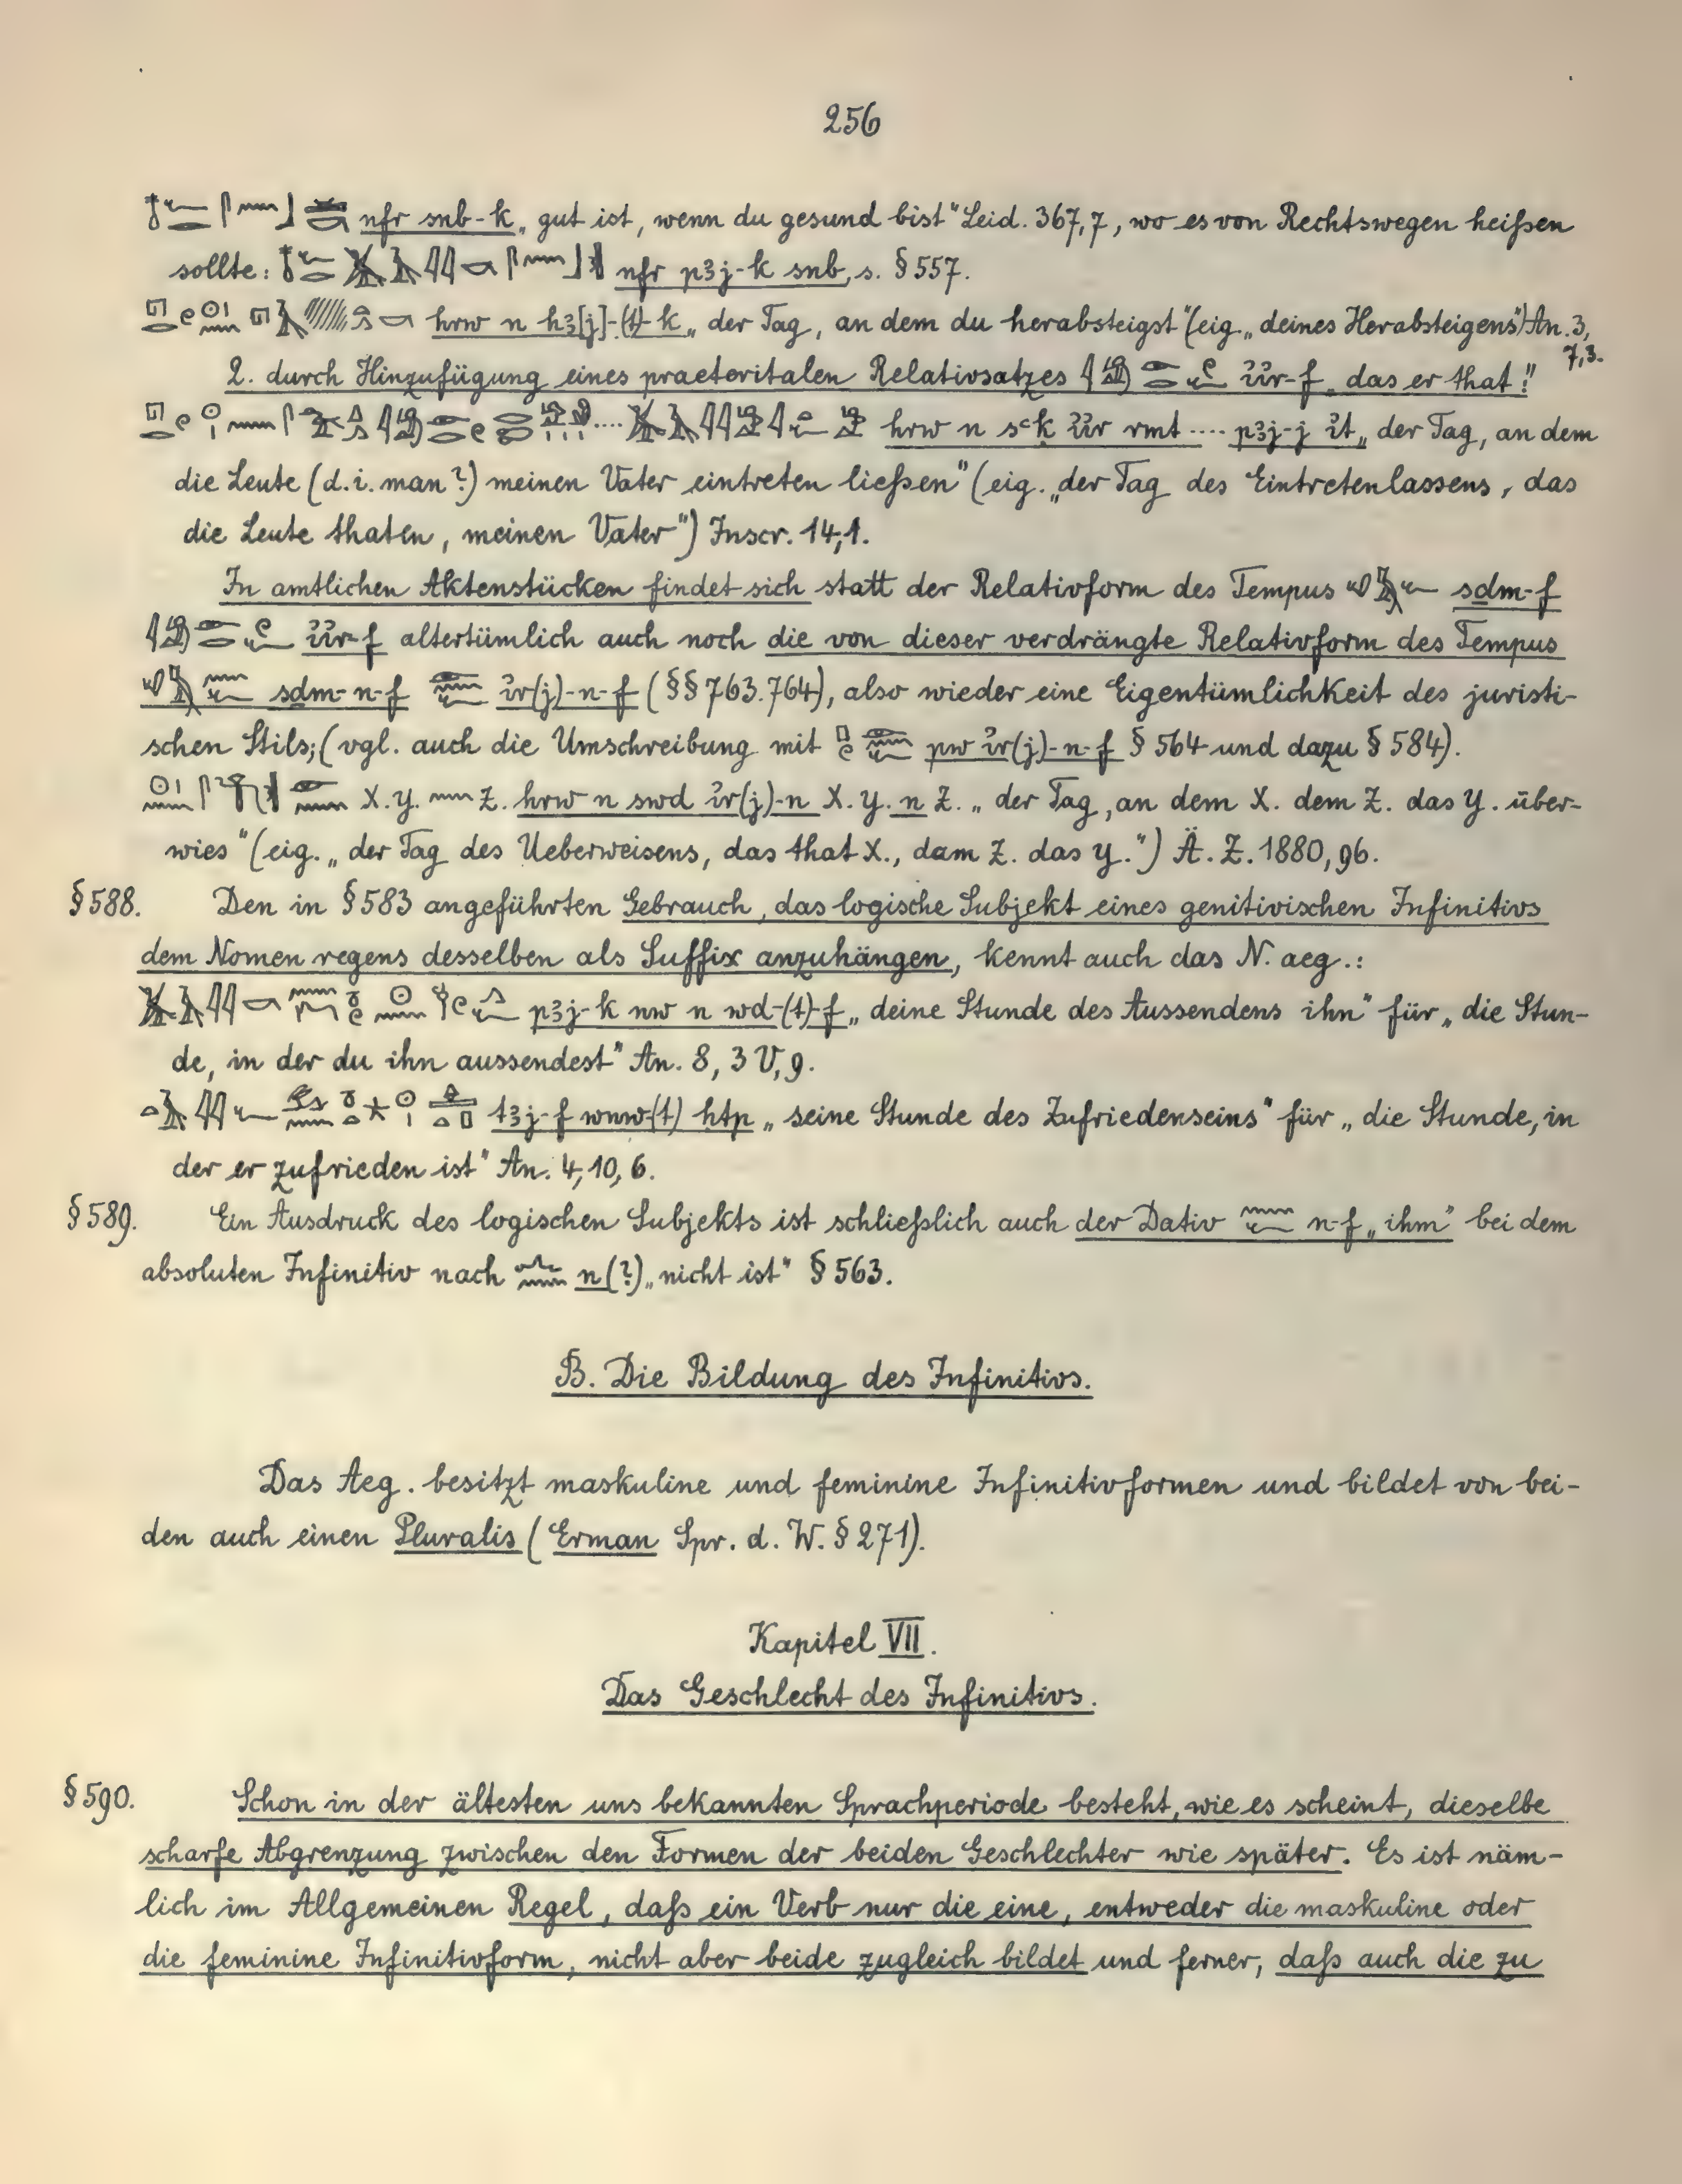 256
nfr snb-k „gut ist, wenn du gesund bist“ Leid. 367,7, wo es von Rechtswegen heißen
sollte: nfr pꜣj-k snb, s. § 557.
hrw n hꜣ[j]-(t)-k „der Tag, an dem du herabsteigst“ (eig. „deines Herabsteigens“) An. 3,
7,3.
2. durch Hinzufügung eines praeteritalen Relativsatzes ꞽꞽr-f „das er that“
hrw n sꜥk ꞽꞽr rmt .... pꜣj-j ꞽt „der Tag, an dem
die Leute (d. i. man?) meinen Vater eintreten ließen“ (eig. „der Tag des Eintretenlassens, das
die Leute thaten, meinen Vater“) Inscr. 14,1.
In amtlichen Aktenstücken findet sich statt der Relativform des Tempus sdm-f
ꞽꞽr-f altertümlich auch noch die von dieser verdrängte Relativform des Tempus
sdm-n-f ꞽr(j)-n-f (§§ 763.764), also wieder eine Eigentümlichkeit des juristi-
schen Stils; (vgl. auch die Umschreibung mit pw ꞽr(j)-n-f § 564 und dazu § 584).
X. Y. Z. hrw n swd ꞽr(j)-n X. Y. n Z. „der Tag, an dem X. dem Z. das Y. über-
wies“ (eig. „der Tag des Ueberweisens, das that X., dem Z. das Y.“) Ä. Z. 1880, 96.
§ 588. Den in § 583 angeführten Gebrauch, das logische Subjekt eines genitivischen Infinitivs
dem Nomen regens desselben als Suffix anzuhängen, kennt auch das N. aeg.:
pꜣj-k nw n wd-(t)-f „deine Stunde des Aussendens ihn“ für „die Stun-
de, in der du ihn aussendest“ An. 8, 3 V, 9.
tꜣj-f wnw-(t) htp „seine Stunde des Zufriedenseins“ für „die Stunde, in
der er zufrieden ist“ An. 4, 10, 6.
§ 589. Ein Ausdruck des logischen Subjekts ist schließlich auch der Dativ n-f „ihm“ bei dem
absoluten Infinitiv nach n(?) „nicht ist“ § 563.
B. Die Bildung des Infinitivs.
Das Aeg. besitzt maskuline und feminine Infinitivformen und bildet von bei-
den auch einen Pluralis (Erman Spr. d. W. § 271).
Kapitel VII.
Das Geschlecht des Infinitivs.
§ 590. Schon in der ältesten uns bekannten Sprachperiode besteht, wie es scheint, dieselbe
scharfe Abgrenzung zwischen den Formen der beiden Geschlechter wie später. Es ist näm-
lich im Allgemeinen Regel, daß ein Verb nur die eine, entweder die maskuline oder
die feminine Infinitivform, nicht aber beide zugleich bildet und ferner, daß auch die zu